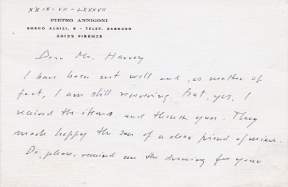 XXIX-VII-LXXXVI
PIETRO ANNIGONI
BORGO ALBIZI, 8 - TELEF.
50122 FIRENZE
Dear Mr. Harvey
I have been not well and, as matter of
fact, I am still recovering but, yes, I
received the and thank you. They
made happy the son of a dear friend of mine.
Do, please, remind me the drawing for your